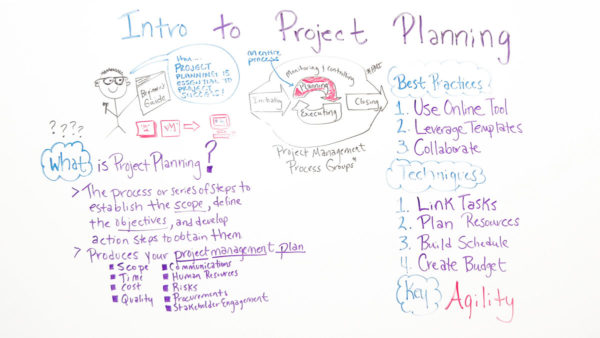 Intro to Project Planning
Hmm...
PROJECT
PLANNING IS
ESSENTIAL TO
PROJECT
SUCCESS!
Beginner's
Guide
iterative
process
Monitoring & Controlling
Planning
Initiating
Closing
Executing
Project Management
Process Groups*
????
What is Project Planning?
> The process or series of steps to
establish the scope, define
the objectives, and develop
action steps to obtain them
> Produces your project management plan
Scope
Time
Cost
Quality
Communications
Human Resources
Risks
Procurements
Stakeholder Engagement
Best Practices
1. Use Online Tool
2. Leverage Templates
3. Collaborate
Techniques
1. Link Tasks
2. Plan Resources
3. Build Schedule
4. Create Budget
Key Agility